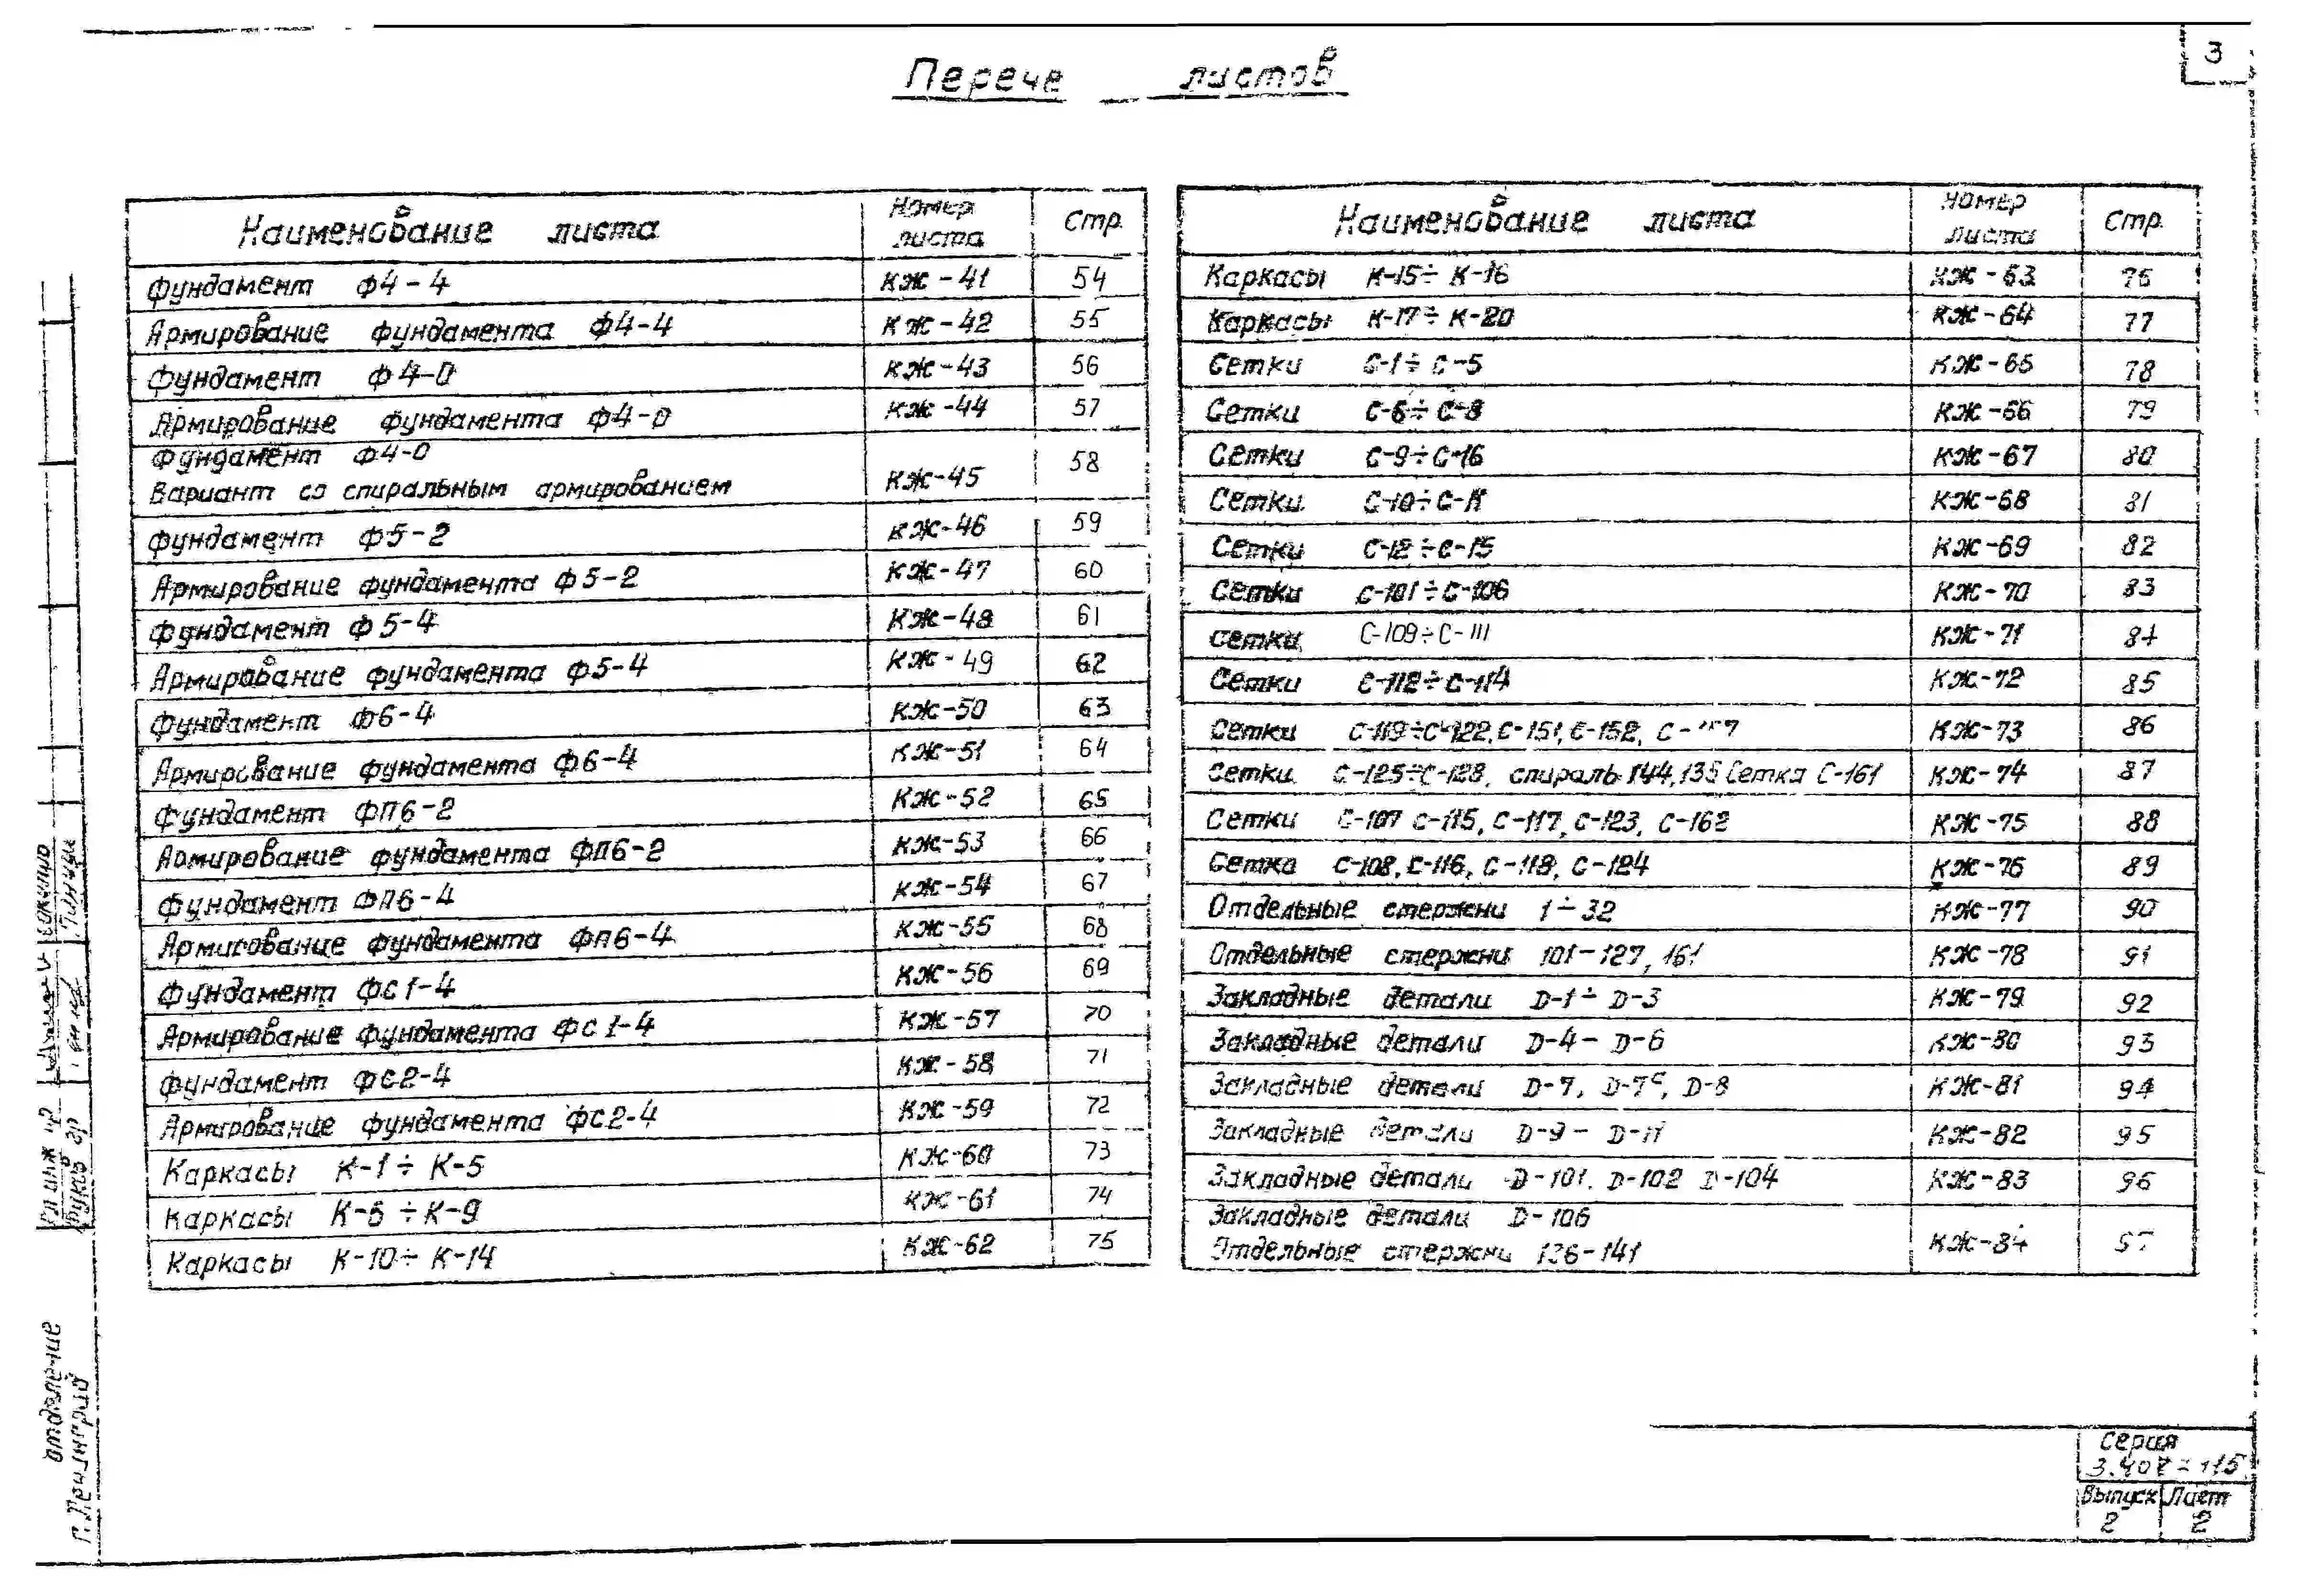 3
Перече листов
Наименование листа Номер листа Стр.
Фундамент Ф4-4 КЖ-41 54
Армирование фундамента Ф4-4 КЖ-42 55
Фундамент Ф4-0 КЖ-43 56
Армирование фундамента Ф4-0 КЖ-44 57
Фундамент Ф4-0
Вариант со спиральным армированием КЖ-45 58
Фундамент Ф5-2 КЖ-46 59
Армирование фундамента Ф5-2 КЖ-47 60
Фундамент Ф5-4 КЖ-48 61
Армирование фундамента Ф5-4 КЖ-49 62
Фундамент Ф6-4 КЖ-50 63
Армирование фундамента Ф6-4 КЖ-51 64
Фундамент ФП6-2 КЖ-52 65
Армирование фундамента ФП6-2 КЖ-53 66
Фундамент ФП6-4 КЖ-54 67
Армирование фундамента ФП6-4 КЖ-55 68
Фундамент ФС1-4 КЖ-56 69
Армирование фундамента ФС1-4 КЖ-57 70
Фундамент ФС2-4 КЖ-58 71
Армирование фундамента ФС2-4 КЖ-59 72
Каркасы К-1÷К-5 КЖ-60 73
Каркасы К-6÷К-9 КЖ-61 74
Каркасы К-10÷К-14 КЖ-62 75
Наименование листа Номер листа Стр.
Каркасы К-15÷К-16 КЖ-63 76
Каркасы К-17÷К-20 КЖ-64 77
Сетки С-1÷С-5 КЖ-65 78
Сетки С-6÷С-8 КЖ-66 79
Сетки С-9÷С-16 КЖ-67 80
Сетки С-10÷С-11 КЖ-68 81
Сетки С-12÷С-15 КЖ-69 82
Сетки С-101÷С-106 КЖ-70 83
Сетки С-109÷С-111 КЖ-71 84
Сетки С-112÷С-114 КЖ-72 85
Сетки С-119÷С-122, С-151, С-152, КЖ-73 86
Сетки С-125÷С-128, спираль 144,135 Сетка С-161 КЖ-74 87
Сетки С-107 С-115, С-117, С-123, С-162 КЖ-75 88
Сетка С-108, С-116, С-118, С-124 КЖ-76 89
Отдельные стержни 1÷32 КЖ-77 90
Отдельные стержни 101-127, 161 КЖ-78 91
Закладные детали D-1÷D-3 КЖ-79 92
Закладные детали D-4-D-6 КЖ-80 93
Закладные детали D-7, D-7ᶜ, D-8 КЖ-81 94
Закладные детали D-9-D-11 КЖ-82 95
Закладные детали D-101, D-102 D-104 КЖ-83 96
Закладные детали D-106
Отдельные стержни 136-141 КЖ-84 97
отделение
г. Ленинград
Серия
3.407-115
Выпуск Лист
2 2